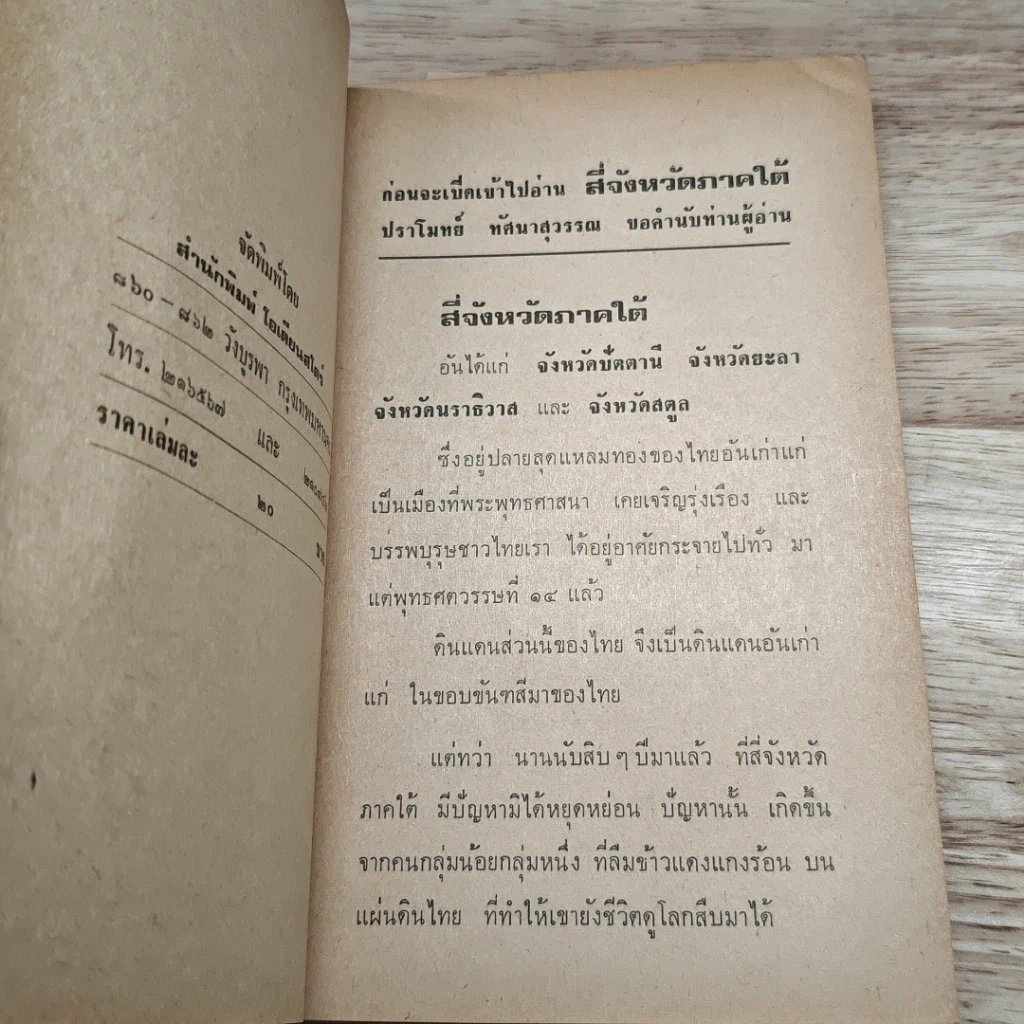 จัดพิมพ์โดย
สำนักพิมพ์ โอเดียนสโตร์
๘๖๐ – ๘๖๒ วังบูรพา
โทร. ๒๑๖๕๖๗ และ
ราคาเล่มละ ๒๐
ก่อนจะเปิดเข้าไปอ่าน สี่จังหวัดภาคใต้
ปราโมทย์ ทัศนาสุวรรณ ขอคำนับท่านผู้อ่าน
สี่จังหวัดภาคใต้
อันได้แก่ จังหวัดปัตตานี จังหวัดยะลา
จังหวัดนราธิวาส และ จังหวัดสตูล
ซึ่งอยู่ปลายสุดแหลมทองของไทยอันเก่าแก่
เป็นเมืองที่พระพุทธศาสนา เคยเจริญรุ่งเรือง และ
บรรพบุรุษชาวไทยเรา ได้อยู่อาศัยกระจายไปทั่ว มา
แต่พุทธศตวรรษที่ ๑๔ แล้ว
ดินแดนส่วนนี้ของไทย จึงเป็นดินแดนอันเก่า
แก่ ในขอบขันฑสีมาของไทย
แต่ทว่า นานนับสิบ ๆ ปีมาแล้ว ที่สี่จังหวัด
ภาคใต้ มีปัญหามิได้หยุดหย่อน ปัญหานั้น เกิดขึ้น
จากคนกลุ่มน้อยกลุ่มหนึ่ง ที่ลืมข้าวแดงแกงร้อน บน
แผ่นดินไทย ที่ทำให้เขายังชีวิตดูโลกสืบมาได้